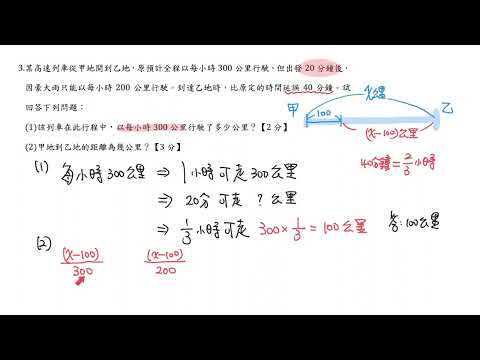 3.某高速列車從甲地開到乙地，原預計全程以每小時 300 公里行駛，但出發 20 分鐘後，
因豪大雨只能以每小時 200 公里行駛，到達乙地時，比原定的時間延誤 40 分鐘，試
回答下列問題：
(1)該列車在此行程中，以每小時 300 公里行駛了多少公里？【2 分】
(2)甲地到乙地的距離為幾公里？【3 分】
x公里
甲
乙
100
(x-100)公里
40分鐘=2/3小時
(1) 每小時300公里 ⇒ 1小時可走300公里
⇒ 20分可走 ? 公里
⇒ 1/3小時可走 300×1/3=100公里
答:100公里
(2)
(x-100)/300 (x-100)/200